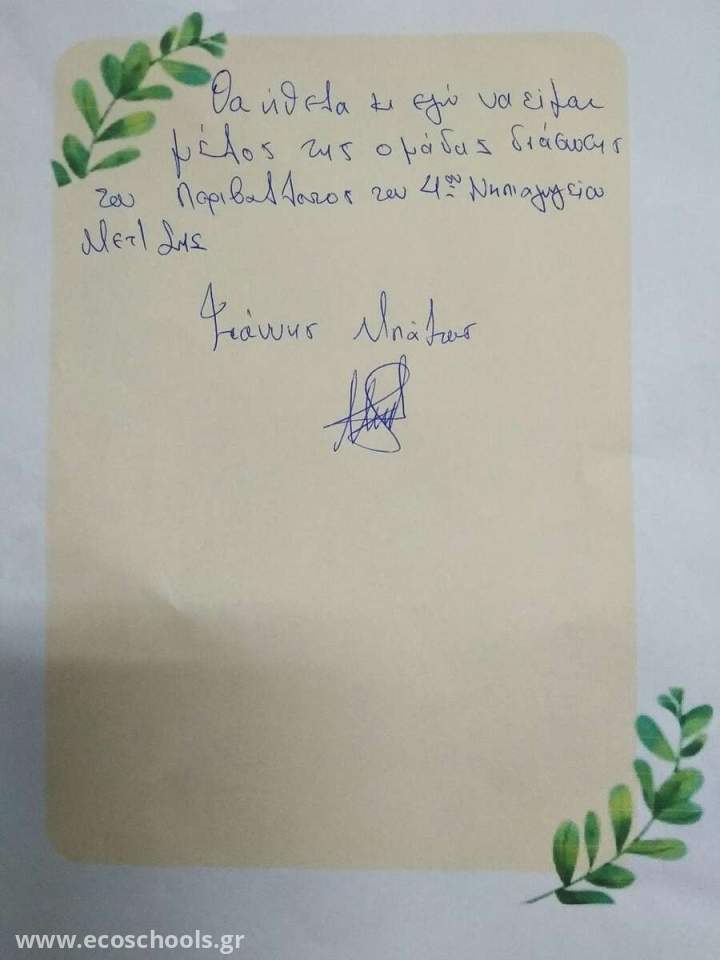 Θα ήθελα κι εγώ να είμαι
μέλος της ομάδας διάσωσης
του περιβάλλοντος του 4ου Νηπιαγωγείου
Γιάννης Μπάτσος
www.ecoschools.gr